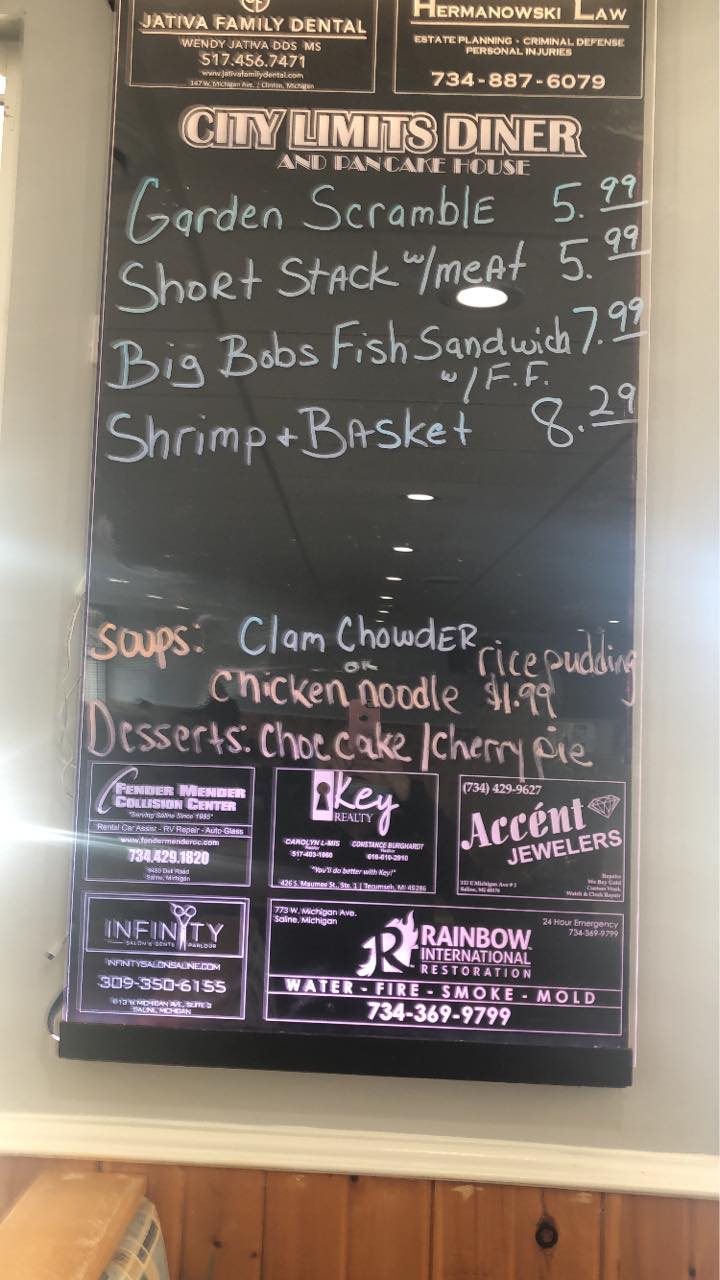 JATIVA FAMILY DENTAL
WENDY JATIVA DDS MS
517.456.7471
www.jativafamilydental.com
147 W. Michigan Ave. | Clinton, Michigan
HERMANOWSKI LAW
ESTATE PLANNING • CRIMINAL DEFENSE
PERSONAL INJURIES
734-887-6079
CITY LIMITS DINER
AND PANCAKE HOUSE
Garden Scramble 5.99
Short Stack w/meat 5.99
Big Bobs Fish Sandwich 7.99
w/F.F.
Shrimp + Basket 8.29
Soups: Clam Chowder
or
Chicken noodle
rice pudding
$1.99
Desserts: Choc cake / Cherry pie
FENDER MENDER
COLLISION CENTER
"Serving Saline Since 1985"
Rental Car Assist - RV Repair - Auto Glass
www.fendermenderoc.com
734.429.1820
Saline, Michigan
Key
REALTY
CAROLYN L-MIS
Realtor
517-403-1060
CONSTANCE BURGHARDT
Realtor
616-610-2910
"You'll do better with Key!"
426 S. Maumee St., Ste. 1 | Tecumseh, MI 49286
(734) 429-9627
Accént
JEWELERS
Saline, MI 48176
Repairs
We Buy Gold
Custom Work
Watch & Clock Repair
INFINITY
SALON & GENTS PARLOUR
INFINITYSALONSALINE.COM
309-350-6155
SALINE, MICHIGAN
773 W. Michigan Ave.
Saline, Michigan
24 Hour Emergency
734-369-9799
JR
RAINBOW
INTERNATIONAL
RESTORATION
WATER - FIRE - SMOKE - MOLD
734-369-9799